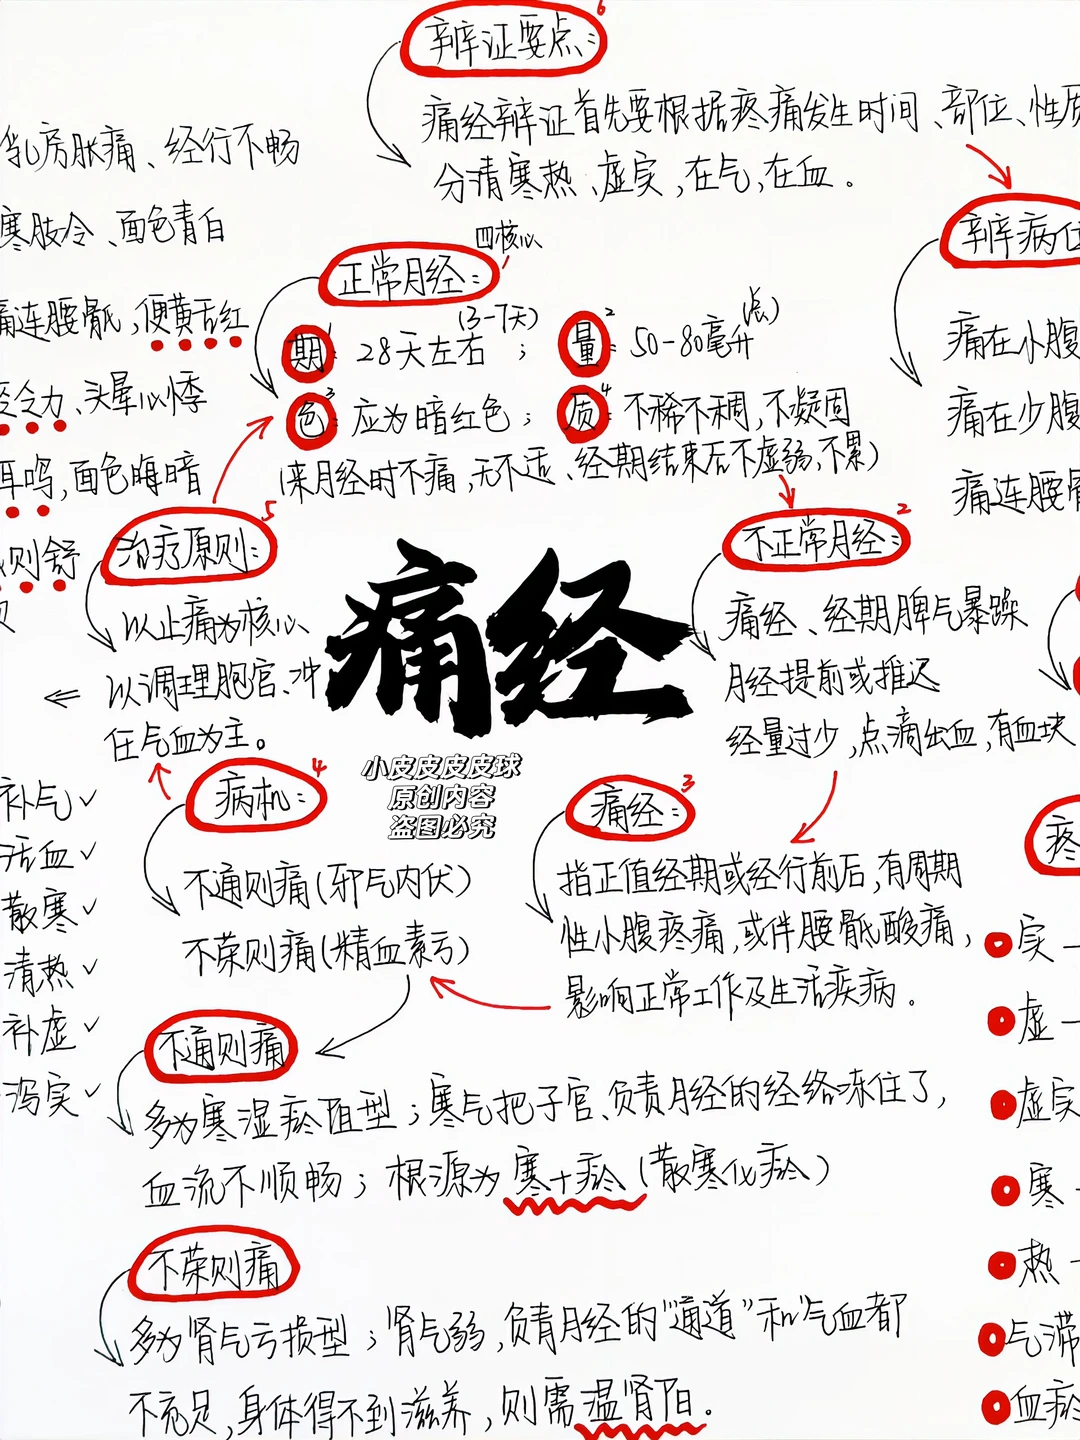 辨证要点: 6
痛经辩证首先要根据疼痛发生时间、部位、性质
分清寒热、虚实,在气,在血。
乳房胀痛、经行不畅
寒肢冷、面色青白
痛连腰骶,便黄舌红
乏力、头晕心悸
耳鸣,面色晦暗
则舒
辨病位
痛在小腹
痛在少腹
痛连腰骶
四核心
正常月经: 1
期: 28天左右(3-7天);
量: 2 50-80毫升(点)
色: 3 应为暗红色;
质: 4 不稀不稠,不凝固
(来月经时不痛,无不适、经期结束后不虚弱,不累)
治疗原则: 5
以止痛为核心、
以调理胞宫、冲
任气血为主。
痛经
小皮皮皮皮球
原创内容
盗图必究
不正常月经: 2
痛经、经期脾气暴躁
月经提前或推迟
经量过少,点滴出血,有血块
补气✓
活血✓
散寒✓
清热✓
补虚✓
泻实✓
病机: 4
不通则痛(邪气内伏)
不荣则痛(精血素亏)
痛经: 3
指正值经期或经行前后,有周期
性小腹疼痛,或伴腰骶酸痛,
影响正常工作及生活疾病。
不通则痛
多为寒湿瘀阻型;寒气把子宫、负责月经的经络冻住了,
血流不顺畅;根源为寒+瘀(散寒化瘀)
不荣则痛
多为肾气亏损型;肾气弱,负责月经的"通道"和气血都
不充足,身体得不到滋养,则需温肾阳。
疼
实
虚
虚实
寒
热
气滞
血瘀